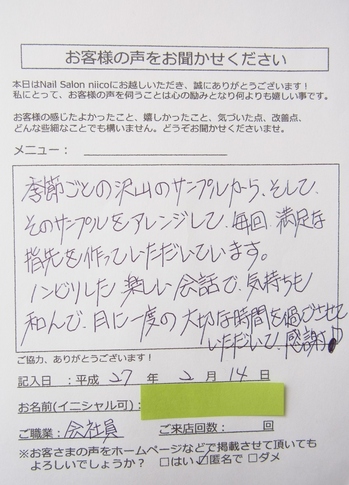 お客様の声をお聞かせください
本日はNail Salon niicoにお越しいただき、誠にありがとうございます！
私にとって、お客様の声を伺うことは心の励みとなり何よりも嬉しい事です。
お客様の感じたよかったこと、嬉しかったこと、気づいた点、改善点、
どんな些細なことでも構いません。どうぞお聞かせくださいませ。
メニュー：
季節ごとの沢山のサンプルから、そして、
そのサンプルをアレンジして、毎回、満足な
指先を作っていただいています。
ノンビリした 楽しい 会話で、気持ちも
和んで、月に一度の 大切な時間を過ごさせて
いただいて、感謝♪
ご協力、ありがとうございます！
記入日 ：平成 27 年 2 月 14 日
お名前(イニシャル可)：
ご職業：会社員 ご来店回数： 回
※お客さまの声をホームページなどで掲載させて頂いても
よろしいでしょうか？ □はい ☑匿名で □ダメ